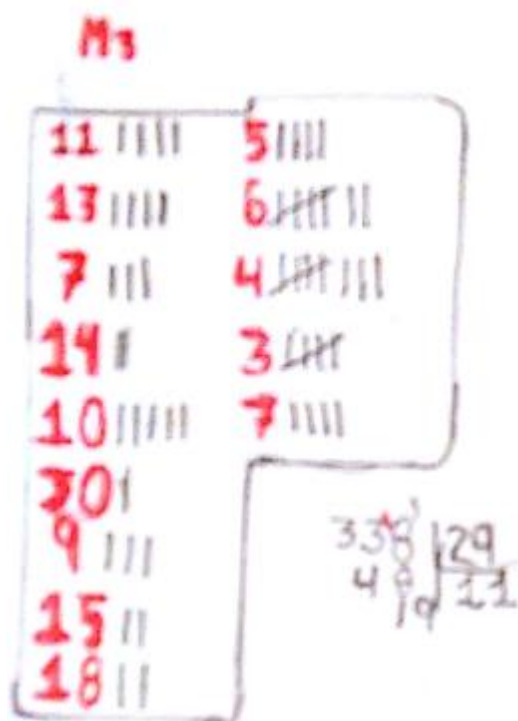 M3
11 |||||
13 |||||
7 |||
14 ||
10 |||||
30 |
9 |||
15 ||
18 ||
5 |||||
6 |||| ||
4 |||| |||
3 ||||
7 ||||
338 29
4 8 11
19